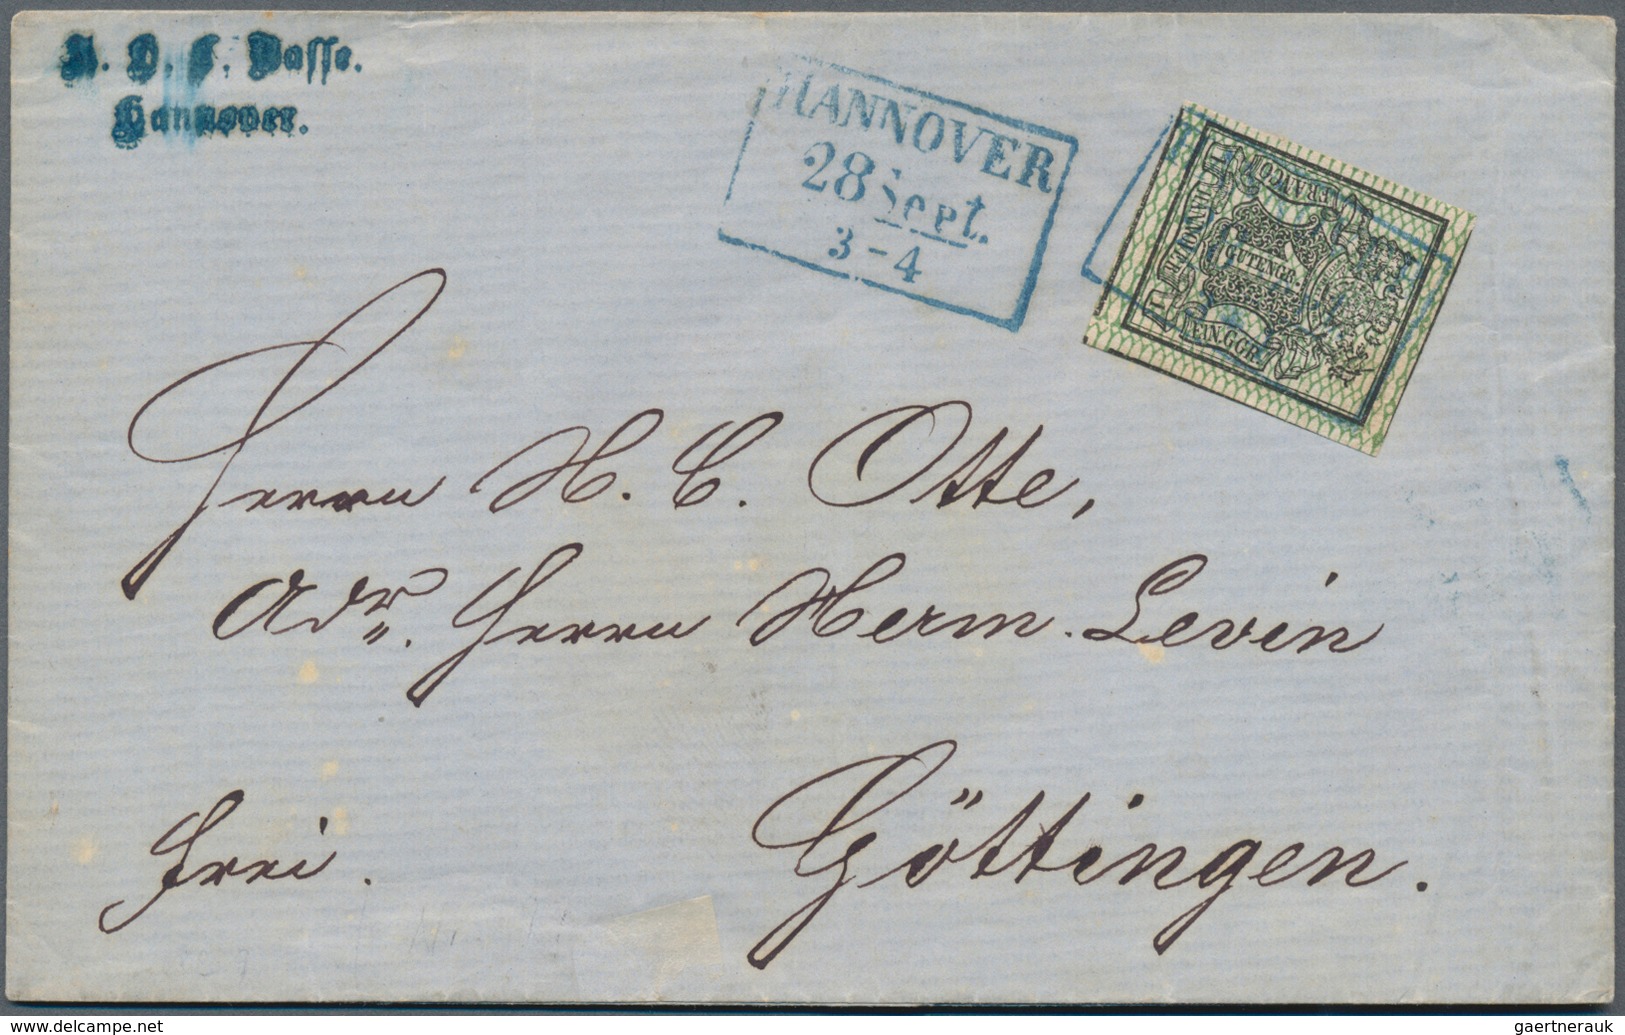 Passe.
Hannover.
HANNOVER
28 Sept.
3-4
HANNOVER
FRANCO
1
GUTENGR.
EIN.GGR.
Herrn H. C. Otte,
Adr. Herrn Herm. Levin
Göttingen.
frei.
www.delcampe.net
gaertnerauk